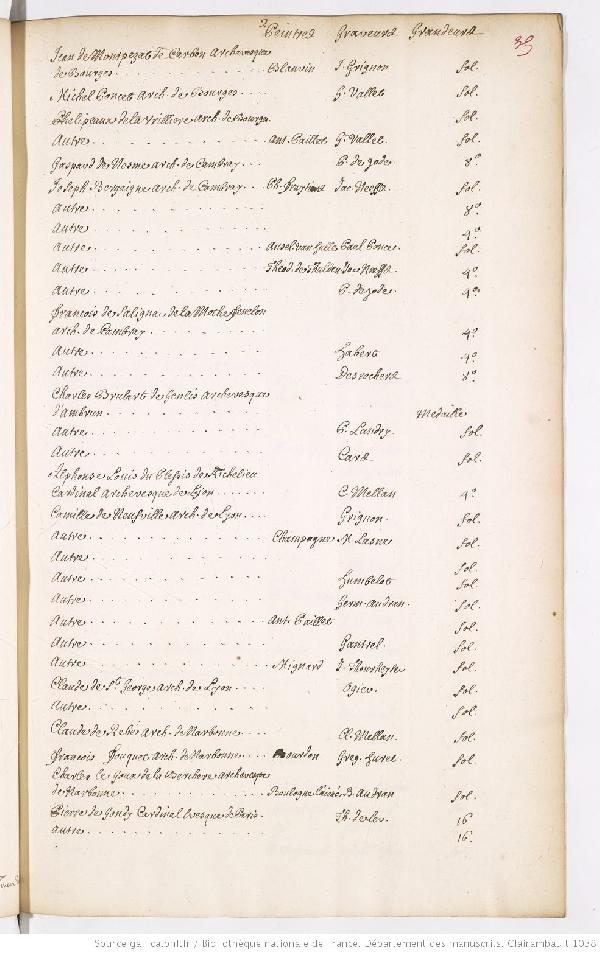 Peintres Graveurs Grandeurs
39
Jean de Montpezat de Carbon Archevesque
de Bourges Blanvin J. Grignon fol.
Michel Poncet Arch. de Bourges G. Vallet fol.
Phelipeaux de la Vrilliere Arch. de Bourges fol.
Autre Ant. Paillet G. Vallet fol.
Gaspard de Nesme arch. de Cambray P. de jode 8º
Joseph Bergaigne arch. de Cambray Jac. Neeffs fol.
Autre 8º
Autre 4º
Autre Anselvan hulle Paul Ponce fol.
Autre Theod. de Jac. Neeffs 4º
Autre P. de jode 4º
François de Salignac de la Mothe fenelon
arch. de Cambray 4º
Autre Habert 4º
Autre Desrochers 8º
Charles Brulart de Genlis Archevesque
d'Ambrun Medaille
Autre P. Landry fol.
Autre Cars fol.
Alphonse Louis du Plessis de Richelieu
Cardinal Archevesque de Lyon C. Mellan 4º
Camille de Neufville Arch. de Lyon Grignon fol.
Autre Champagne M. Lasne fol.
Autre fol.
Autre Humbelot fol.
Autre Germ. Audran fol.
Autre Ant. Paillet fol.
Autre Gantrel fol.
Autre Mignard fol.
Claude de St. George arch. de Lyon Ogier fol.
Autre fol.
Claude de Rebé Arch. de Narbonne Cl. Mellan fol.
François Fouquet Arch. de Narbonne Bourdon Greg. Huret fol.
Charles le Goux de la Berchere archevesque
de Narbonne Boulogne B. Audran fol.
Pierre de Gondy Cardinal Evesque de Paris Th. de leu 16
Autre 16.
Source gallica.bnf.fr / Bibliothèque nationale de France. Département des manuscrits. Clairambault 1038